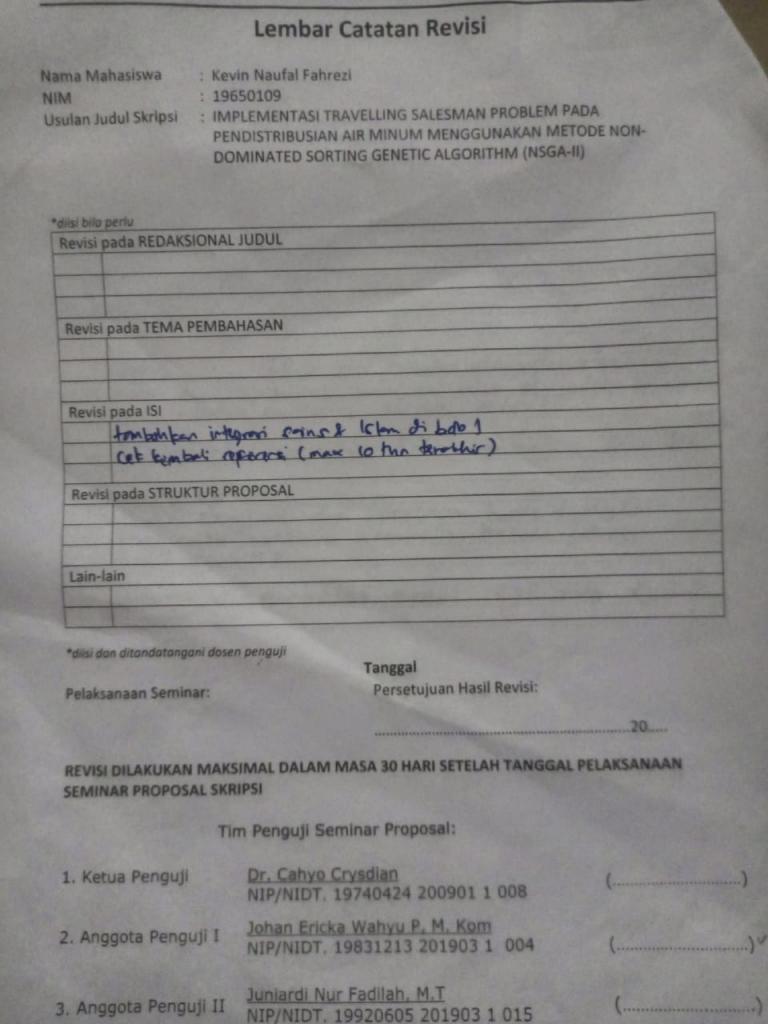 Lembar Catatan Revisi
Nama Mahasiswa : Kevin Naufal Fahrezi
NIM : 19650109
Usulan Judul Skripsi : IMPLEMENTASI TRAVELLING SALESMAN PROBLEM PADA
PENDISTRIBUSIAN AIR MINUM MENGGUNAKAN METODE NON-
DOMINATED SORTING GENETIC ALGORITHM (NSGA-II)
*diisi bila perlu
Revisi pada REDAKSIONAL JUDUL
Revisi pada TEMA PEMBAHASAN
Revisi pada ISI
tambahkan integrasi sains & Islam di bab 1
cek kembali (max 10 thn terakhir)
Revisi pada STRUKTUR PROPOSAL
Lain-lain
*diisi dan ditandatangani dosen penguji
Tanggal
Pelaksanaan Seminar: Persetujuan Hasil Revisi:
..................................................20.....
REVISI DILAKUKAN MAKSIMAL DALAM MASA 30 HARI SETELAH TANGGAL PELAKSANAAN
SEMINAR PROPOSAL SKRIPSI
Tim Penguji Seminar Proposal:
1. Ketua Penguji Dr. Cahyo Crysdian (............................)
NIP/NIDT. 19740424 200901 1 008
2. Anggota Penguji I Johan Ericka Wahyu P, M. Kom (............................)
NIP/NIDT. 19831213 201903 1 004
3. Anggota Penguji II Juniardi Nur Fadilah, M.T (............................)
NIP/NIDT. 19920605 201903 1 015